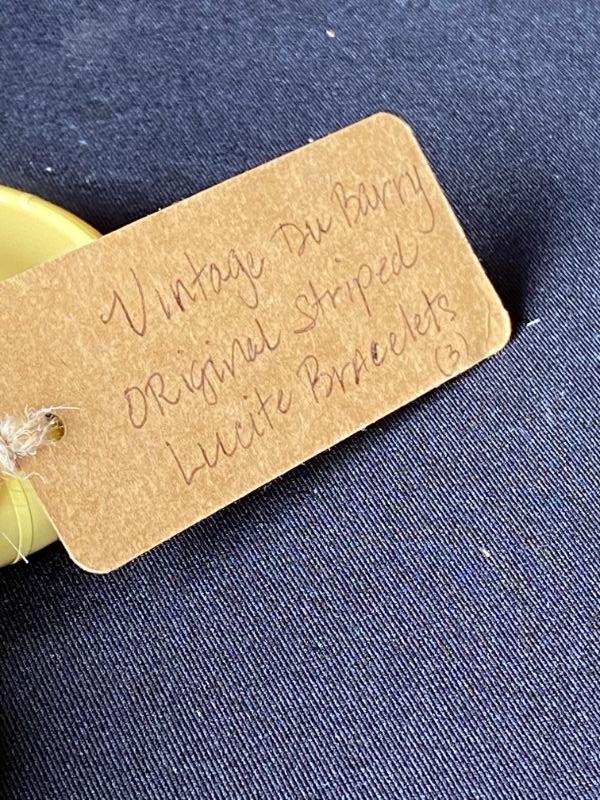 Vintage Du Barry
ORiginal Striped
Lucite Bracelets
(3)